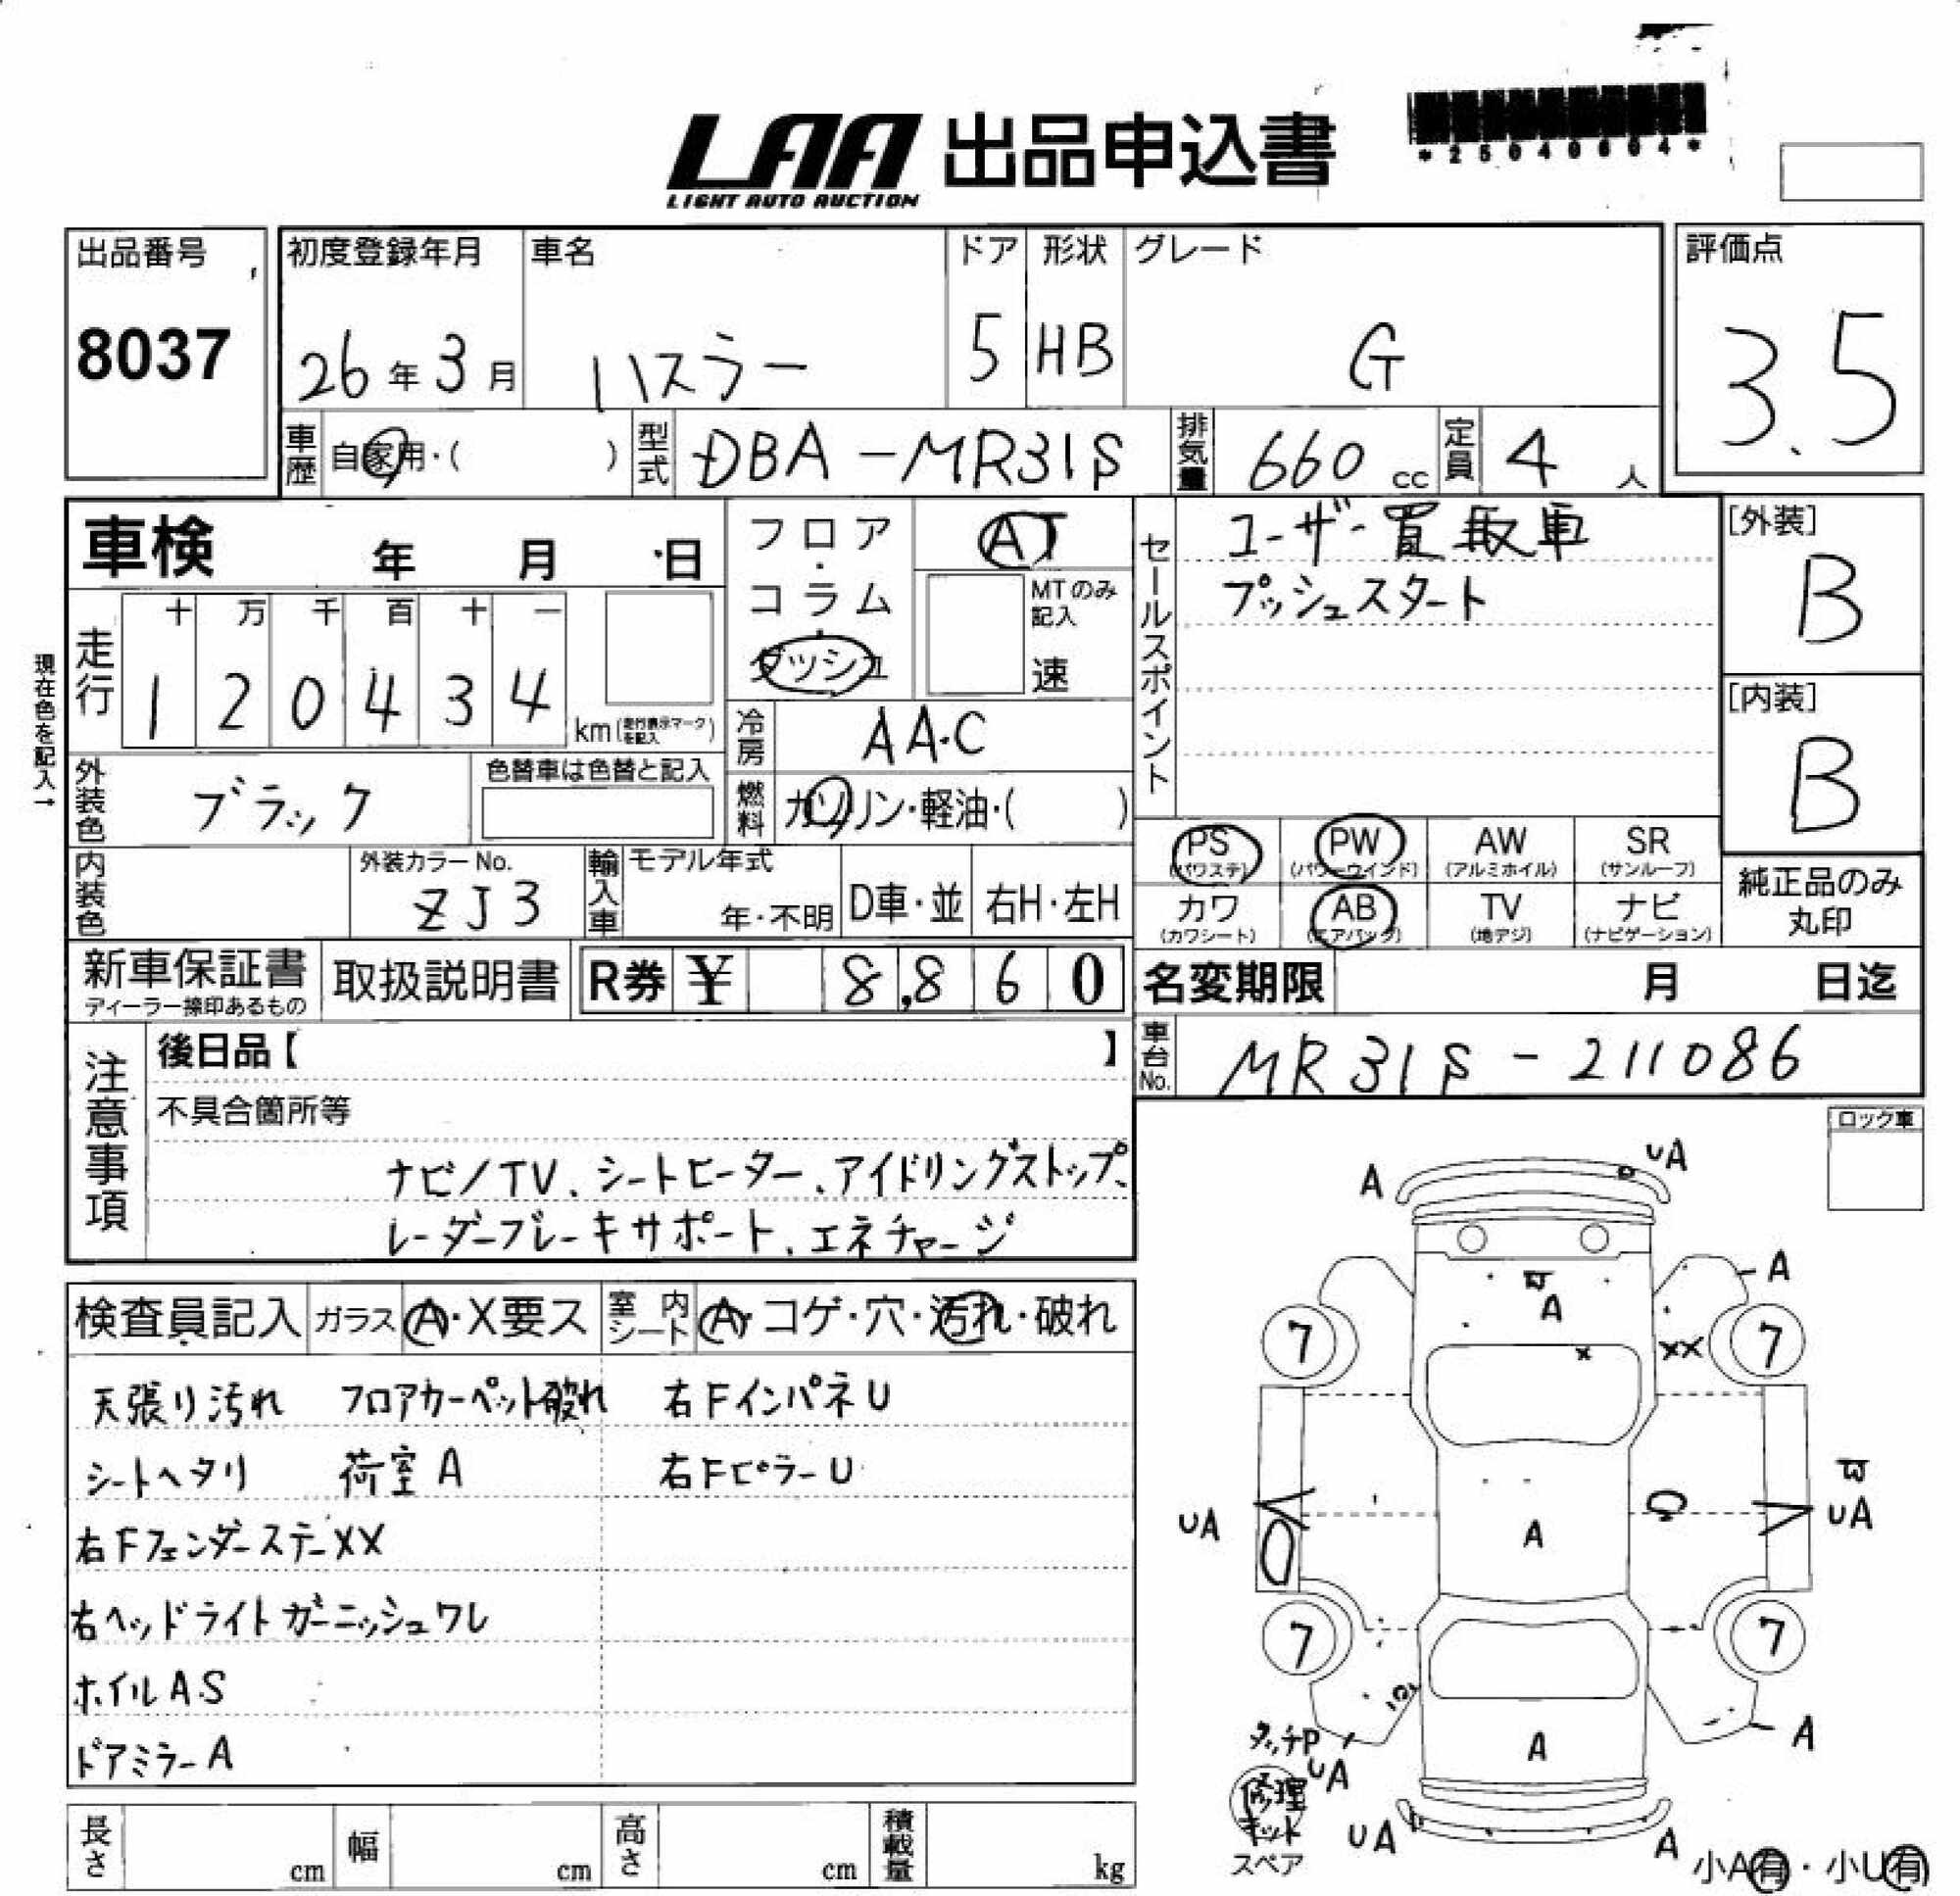 LAA 出品申込書
LIGHT AUTO AUCTION
*25040604*
出品番号
8037
初度登録年月
26年3月
車名
ハスラー
ドア
5
形状
HB
グレード
G
評価点
3.5
車歴 自家用・( )
型式 DBA-MR31S
排気量 660 cc
定員 4 人
車検 年 月 日
フロア・コラム・ダッシュ
AT
MTのみ記入
速
セールスポイント
ユーザー買取車
プッシュスタート
[外装]
B
[内装]
B
現在色を記入→
走行
十 万 千 百 十 一
1 2 0 4 3 4 km (走行表示マークを記入)
冷房 AA.C
燃料 ガソリン・軽油・( )
外装色 ブラック
色替車は色替と記入
内装色
外装カラーNo.
ZJ3
輸入車
モデル年式
年・不明
D車・並
右H・左H
PS (パワステ)
PW (パワーウインド)
AW (アルミホイル)
SR (サンルーフ)
カワ (カワシート)
AB (エアバック)
TV (地デジ)
ナビ (ナビゲーション)
純正品のみ丸印
新車保証書
ディーラー捺印あるもの
取扱説明書
R券 ¥ 8,860
名変期限 月 日迄
車台No. MR31S-211086
注意事項
後日品【 】
不具合箇所等
ナビ/TV、シートヒーター、アイドリングストップ、
レーダーブレーキサポート、エネチャージ
ロック車
検査員記入
ガラス A・X要ス
室内シート A・コゲ・穴・汚れ・破れ
天張り汚れ フロアカーペット破れ 右FインパネU
シートヘタリ 荷室A 右FピラーU
右FフェンダーステーXX
右ヘッドライトガーニッシュワレ
ホイルA.S
ドアミラーA
A UA
A
A
7 XX 7
UA A UA
7 7
A A
タッチP
UA
修理キット
スペア
UA A
小A有・小U有
長さ cm
幅 cm
高さ cm
積載量 kg